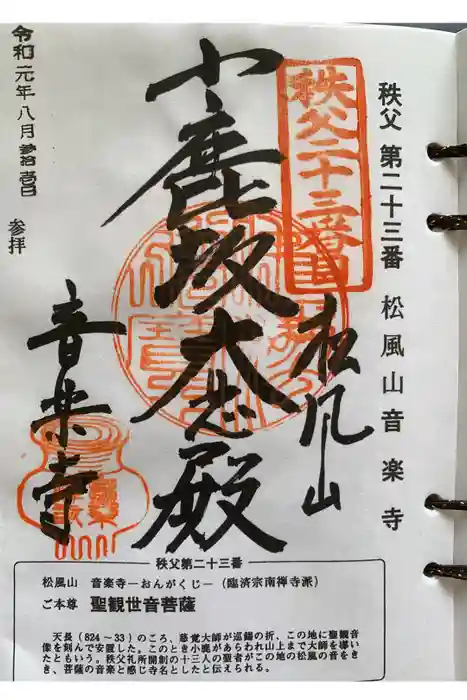 秩父 第二十三番 松風山 音楽寺
秩父二十三番
松風山
小鹿坂大悲殿
音楽寺
令和元年八月参拾壱日 参拝
秩父第二十三番
松風山 音楽寺―おんがくじ―(臨済宗南禅寺派)
ご本尊 聖観世音菩薩
天長(824～33)のころ、慈覚大師が巡錫の折、この地に聖観音
像を刻んで安置した。このとき小鹿があらわれ山上まで大師を導い
たともいう。秩父札所開創の十三人の聖者がこの地の松風の音をき
き、菩薩の音楽と感じ寺名としたと伝えられる。